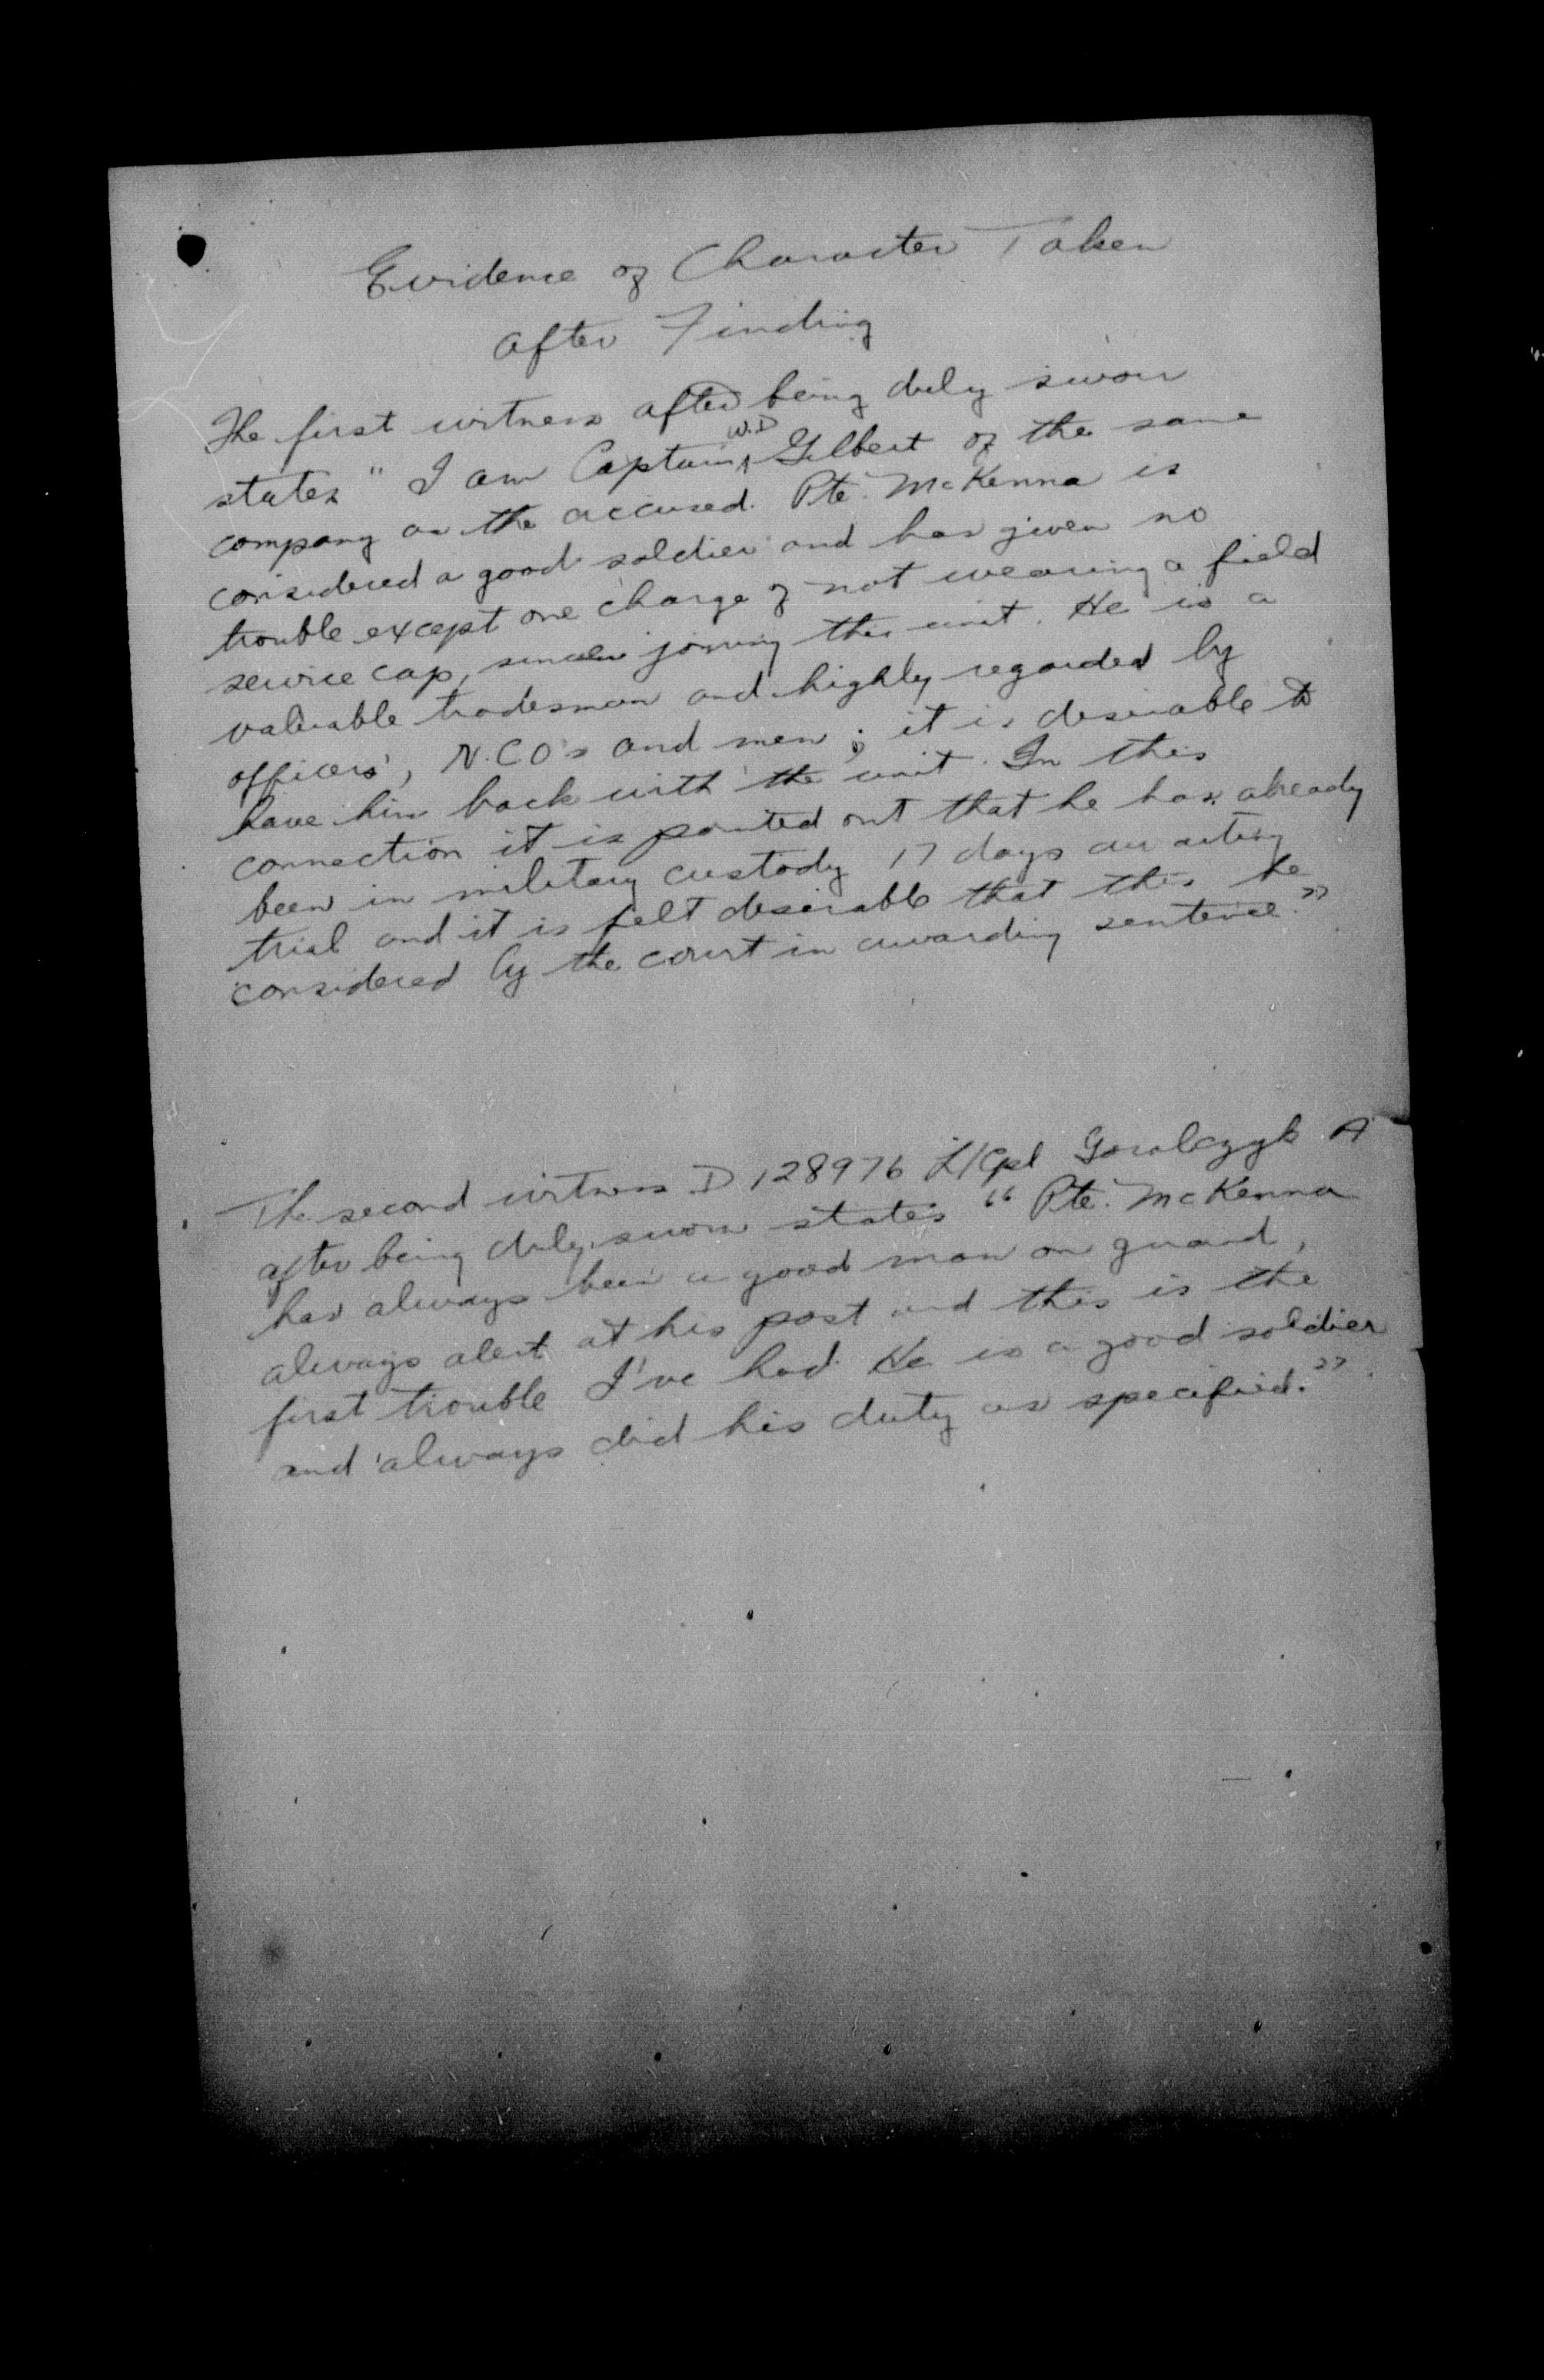 Evidence of Character Taken
after Finding
The first witness after being duly sworn
states " I am Captain W.D Gilbert of the same
company as the accused. Pte. McKenna is
considered a good soldier and has given no
trouble except one charge of not wearing a field
service cap, since joining this unit. He is a
valuable tradesman and highly regarded by
officers, N.C.O's and men; it is desirable to
have him back with the unit. In this
connection it is pointed out that he has already
been in military custody 17 days awaiting
trial and it is felt desirable that this be
considered by the court in awarding sentence."
The second witness D 128976 L/Cpl Goralczyk A
after being duly sworn states " Pte. McKenna
has always been a good man on guard,
always alert at his post and this is the
first trouble I've had. He is a good soldier
and always did his duty as specified."